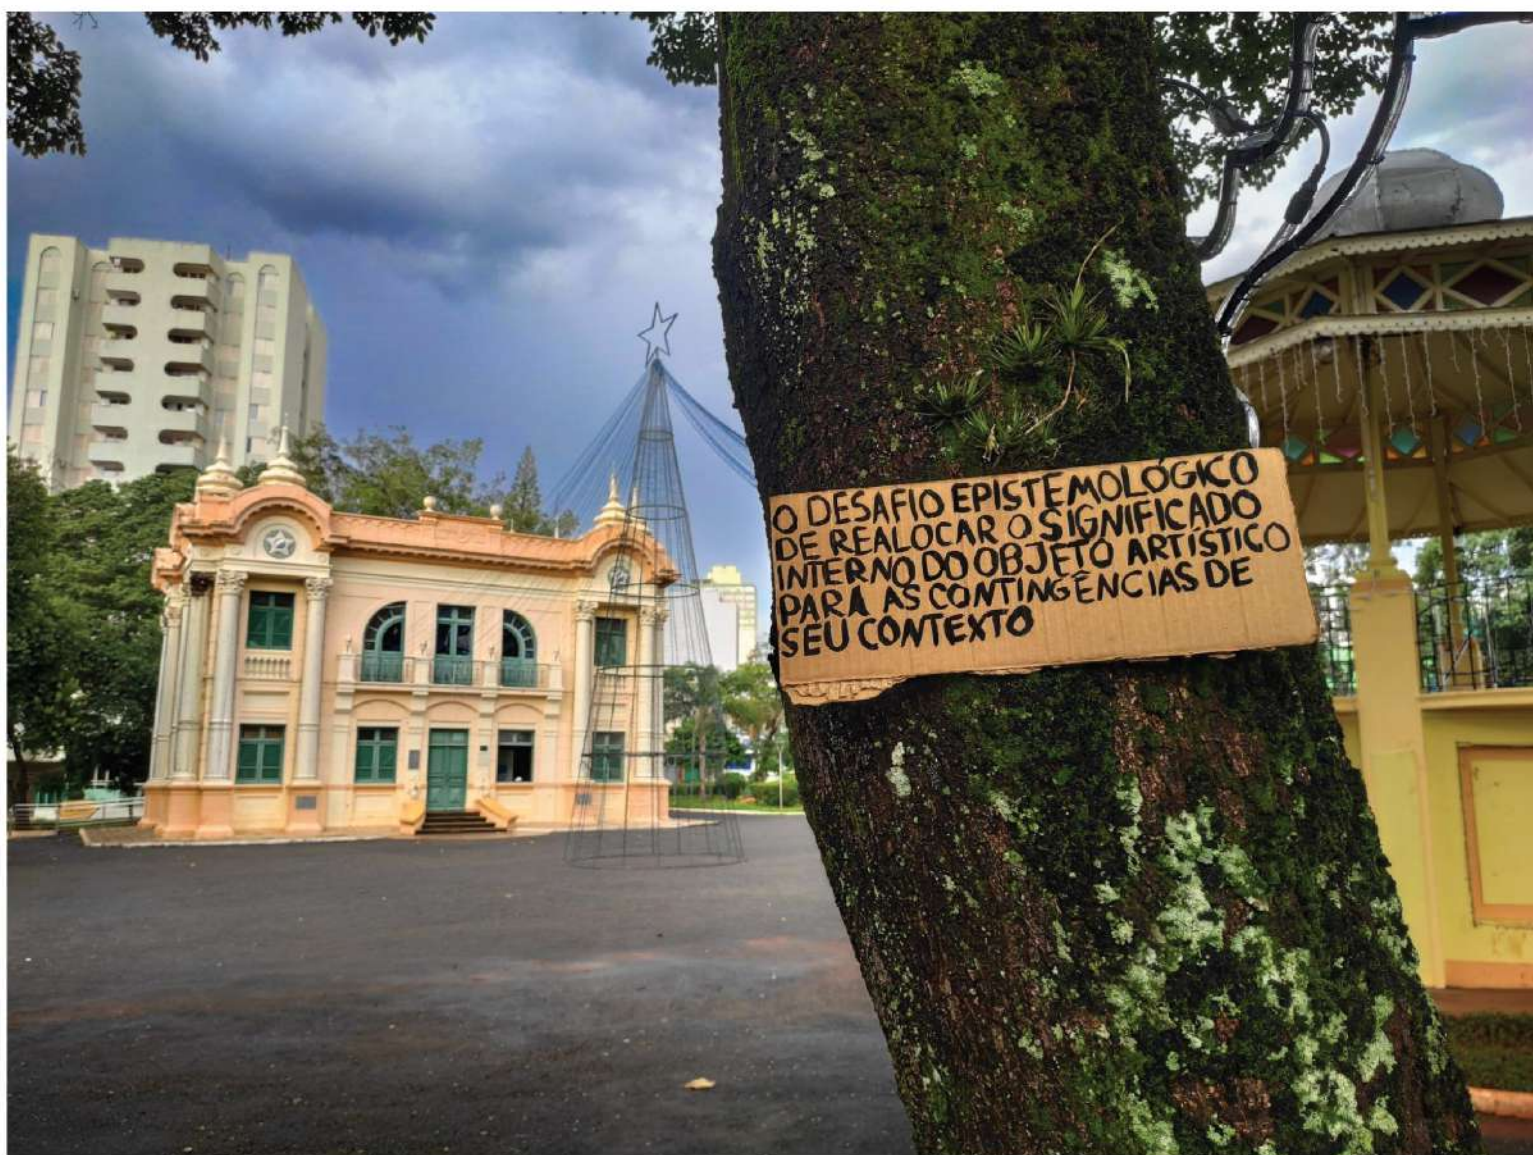 O DESAFIO EPISTEMOLÓGICO
DE REALOCAR O SIGNIFICADO
INTERNO DO OBJETO ARTÍSTICO
PARA AS CONTINGÊNCIAS DE
SEU CONTEXTO